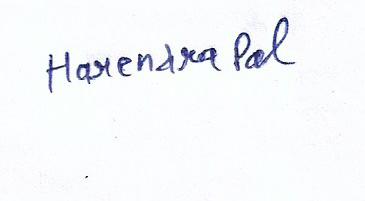 Harendra Pal